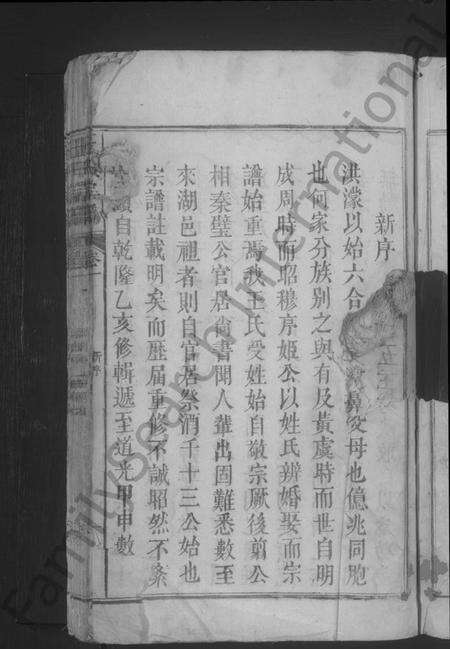 新序
洪濛以始六合
鼻父母也億兆同胞
也何家分族別之與有及黃虞時而世自明
成周時而昭穆序姬公以姓氏辨婚娶而宗
譜始重焉我王氏受姓始自敬宗厥後翦公
相秦璧公官居尚書聞人輩出固難悉數至
來湖邑祖者則自官居祭酒千十三公始也
宗譜註載明矣而歷屆重修不誠昭然不紊
自乾隆乙亥修輯遞至道光甲申數
新序
Familysearch International